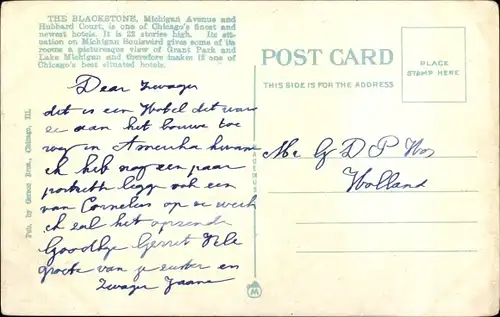 THE BLACKSTONE, Michigan Avenue and
Hubbard Court, is one of Chicago's finest and
newest hotels. It is 22 stories high. Its sit-
uation on Michigan Boulevard gives some of its
rooms a picturesque view of Grant Park and
Lake Michigan and therefore makes it one of
Chicago's best situated hotels.
Pub. by Gerson Bros., Chicago, Ill.
POST CARD
THIS SIDE IS FOR THE ADDRESS
PLACE
STAMP HERE
Dear Zwager
dit is een Hotel dit ware
ze aan het bouwe toe
wy in Amerika kwame
ik heb nog een paar
portrette legge ook een
van Cornelius op de werk
ik zal het opzende
Goodbye Gerret Vele
groete van je zuster en
Zwager Jaane
Mr G D P Vos
Holland